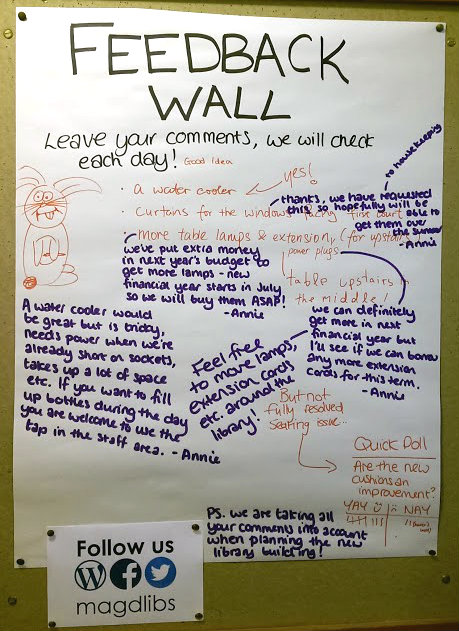 FEEDBACK
WALL
Leave your comments, we will check
each day! Good Idea
yes!
to housekeeping
• A water cooler
thanks, we have requested
this, so hopefully will be
able to
get them over
the summer
- Annie
• Curtains for the windows facing first court
• More table lamps & extension, (for upstairs)
power plugs
we've put extra money
in next year's budget to
get more lamps - new
financial year starts in July
so we will buy them ASAP!
- Annie
table upstairs in
the middle!
we can definitely
get more in next
financial year but
I'll see if we can borrow
any more extension
cords for this term.
- Annie
A water cooler would
be great but is tricky,
needs power when we're
already short on sockets,
takes up a lot of space
etc. If you want to fill
up bottles during the day
you are welcome to use the
tap in the staff area. - Annie
Feel free
to move lamps,
extension cords
etc. around the
library!
But not
fully resolved
Seating issue...
Quick Poll
Are the new
cushions an
improvement?
YAY NAY
PS. we are taking all
your comments into account
when planning the new
library building!
Follow us
magdlibs